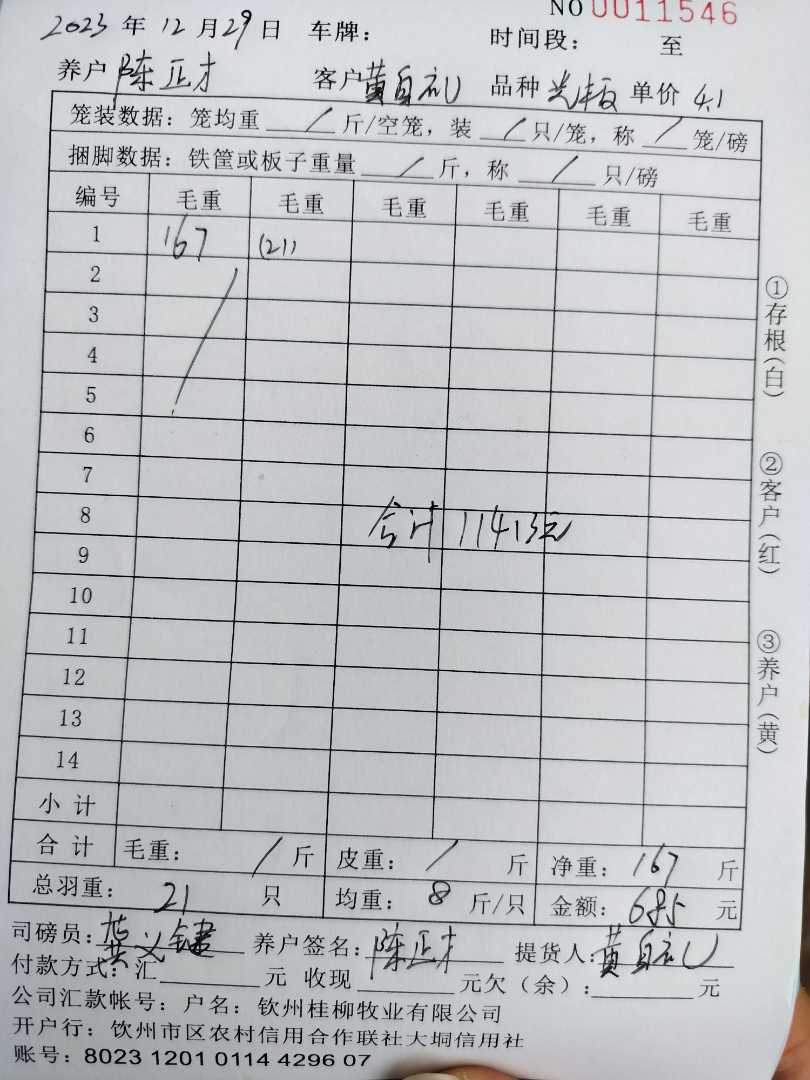 NO 0011546
2023 年 12 月 29 日 车牌： 时间段： 至
养户 陈正才 客户 黄自礼 品种 光板 单价 4.1
笼装数据：笼均重 / 斤/空笼，装 / 只/笼，称 / 笼/磅
捆脚数据：铁筐或板子重量 / 斤，称 / 只/磅
编号 毛重 毛重 毛重 毛重 毛重 毛重
1 167 (21)
2
3
4
5
6
7
8 合计 11413元
9
10
11
12
13
14
小计
合计 毛重： / 斤 皮重： / 斤 净重： 167 斤
总羽重： 21 只 均重： 8 斤/只 金额： 685 元
司磅员： 义键 养户签名： 陈正才 提货人： 黄自礼
付款方式：汇 元 收现 元欠（余）： 元
公司汇款帐号：户名：钦州桂柳牧业有限公司
开户行：钦州市区农村信用合作联社大垌信用社
账号：8023 1201 0114 4296 07
①存根(白)
②客户(红)
③养户(黄)